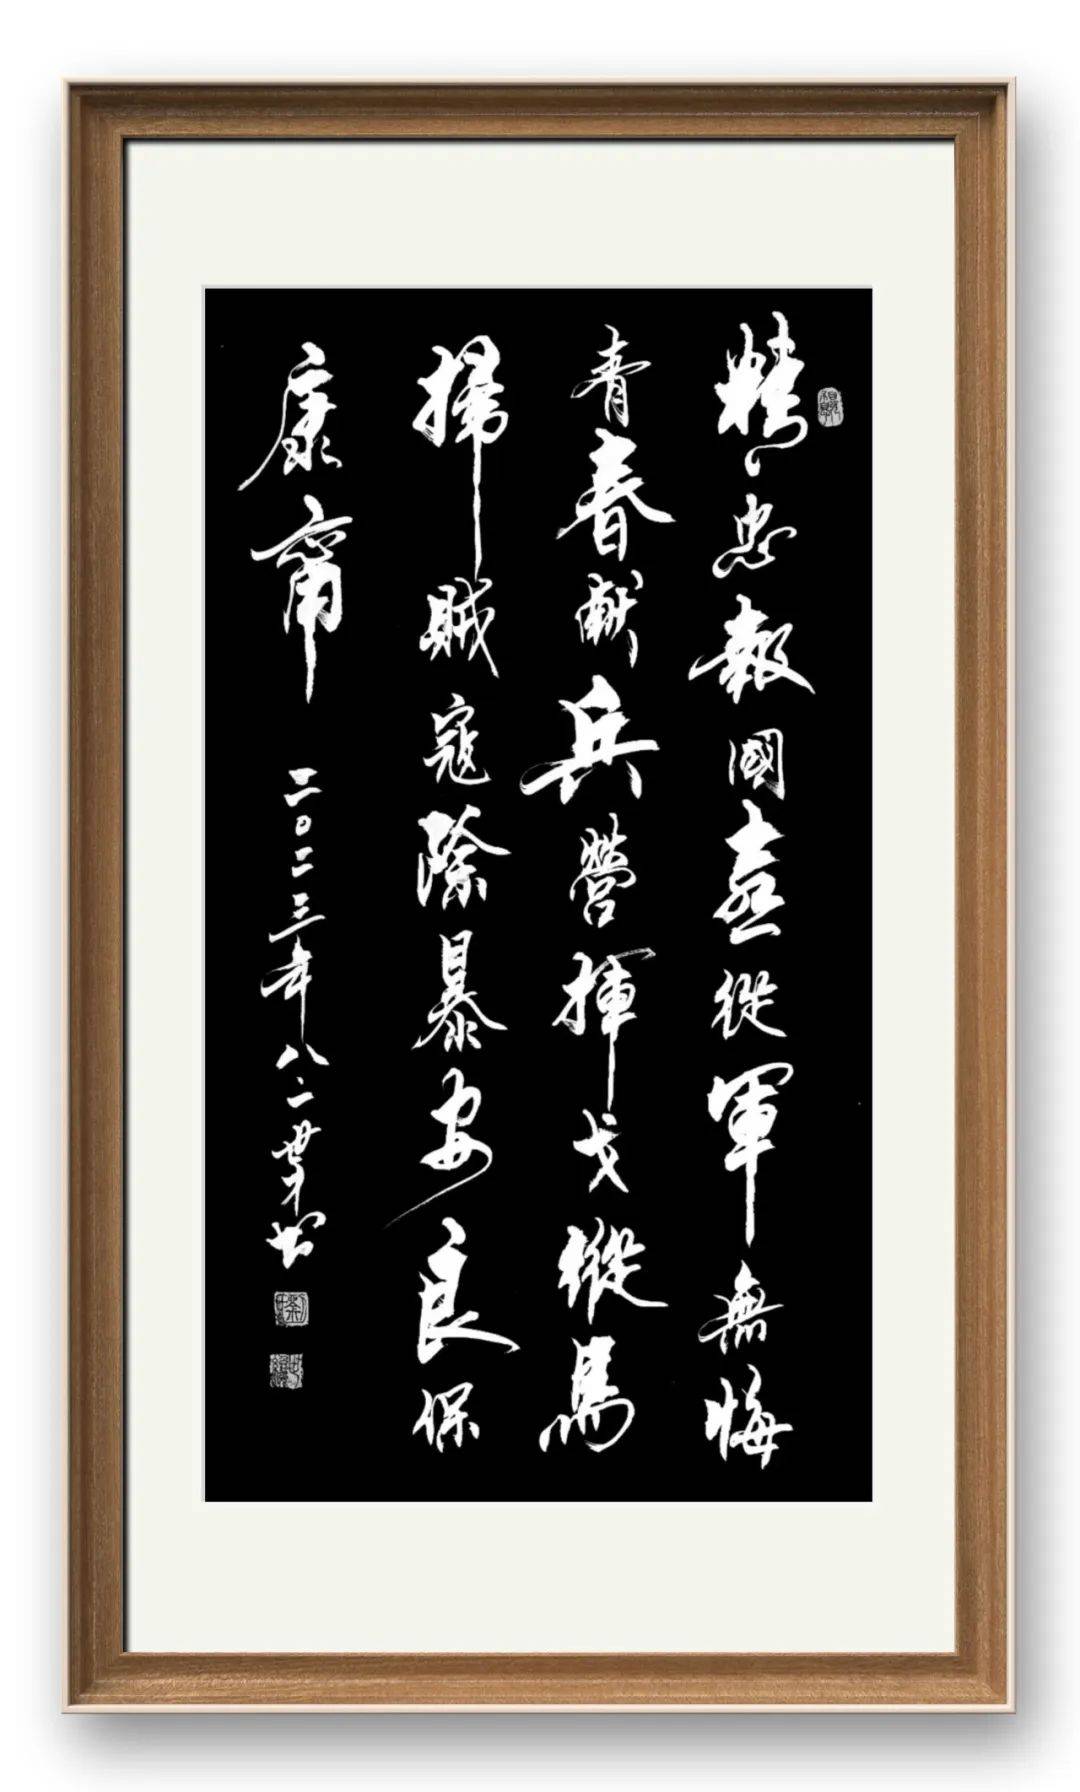 精忠報國喜從軍無悔
青春獻兵營揮戈縱馬
掃賊寇除暴安良保
康甯
二〇二三年八·一世才书